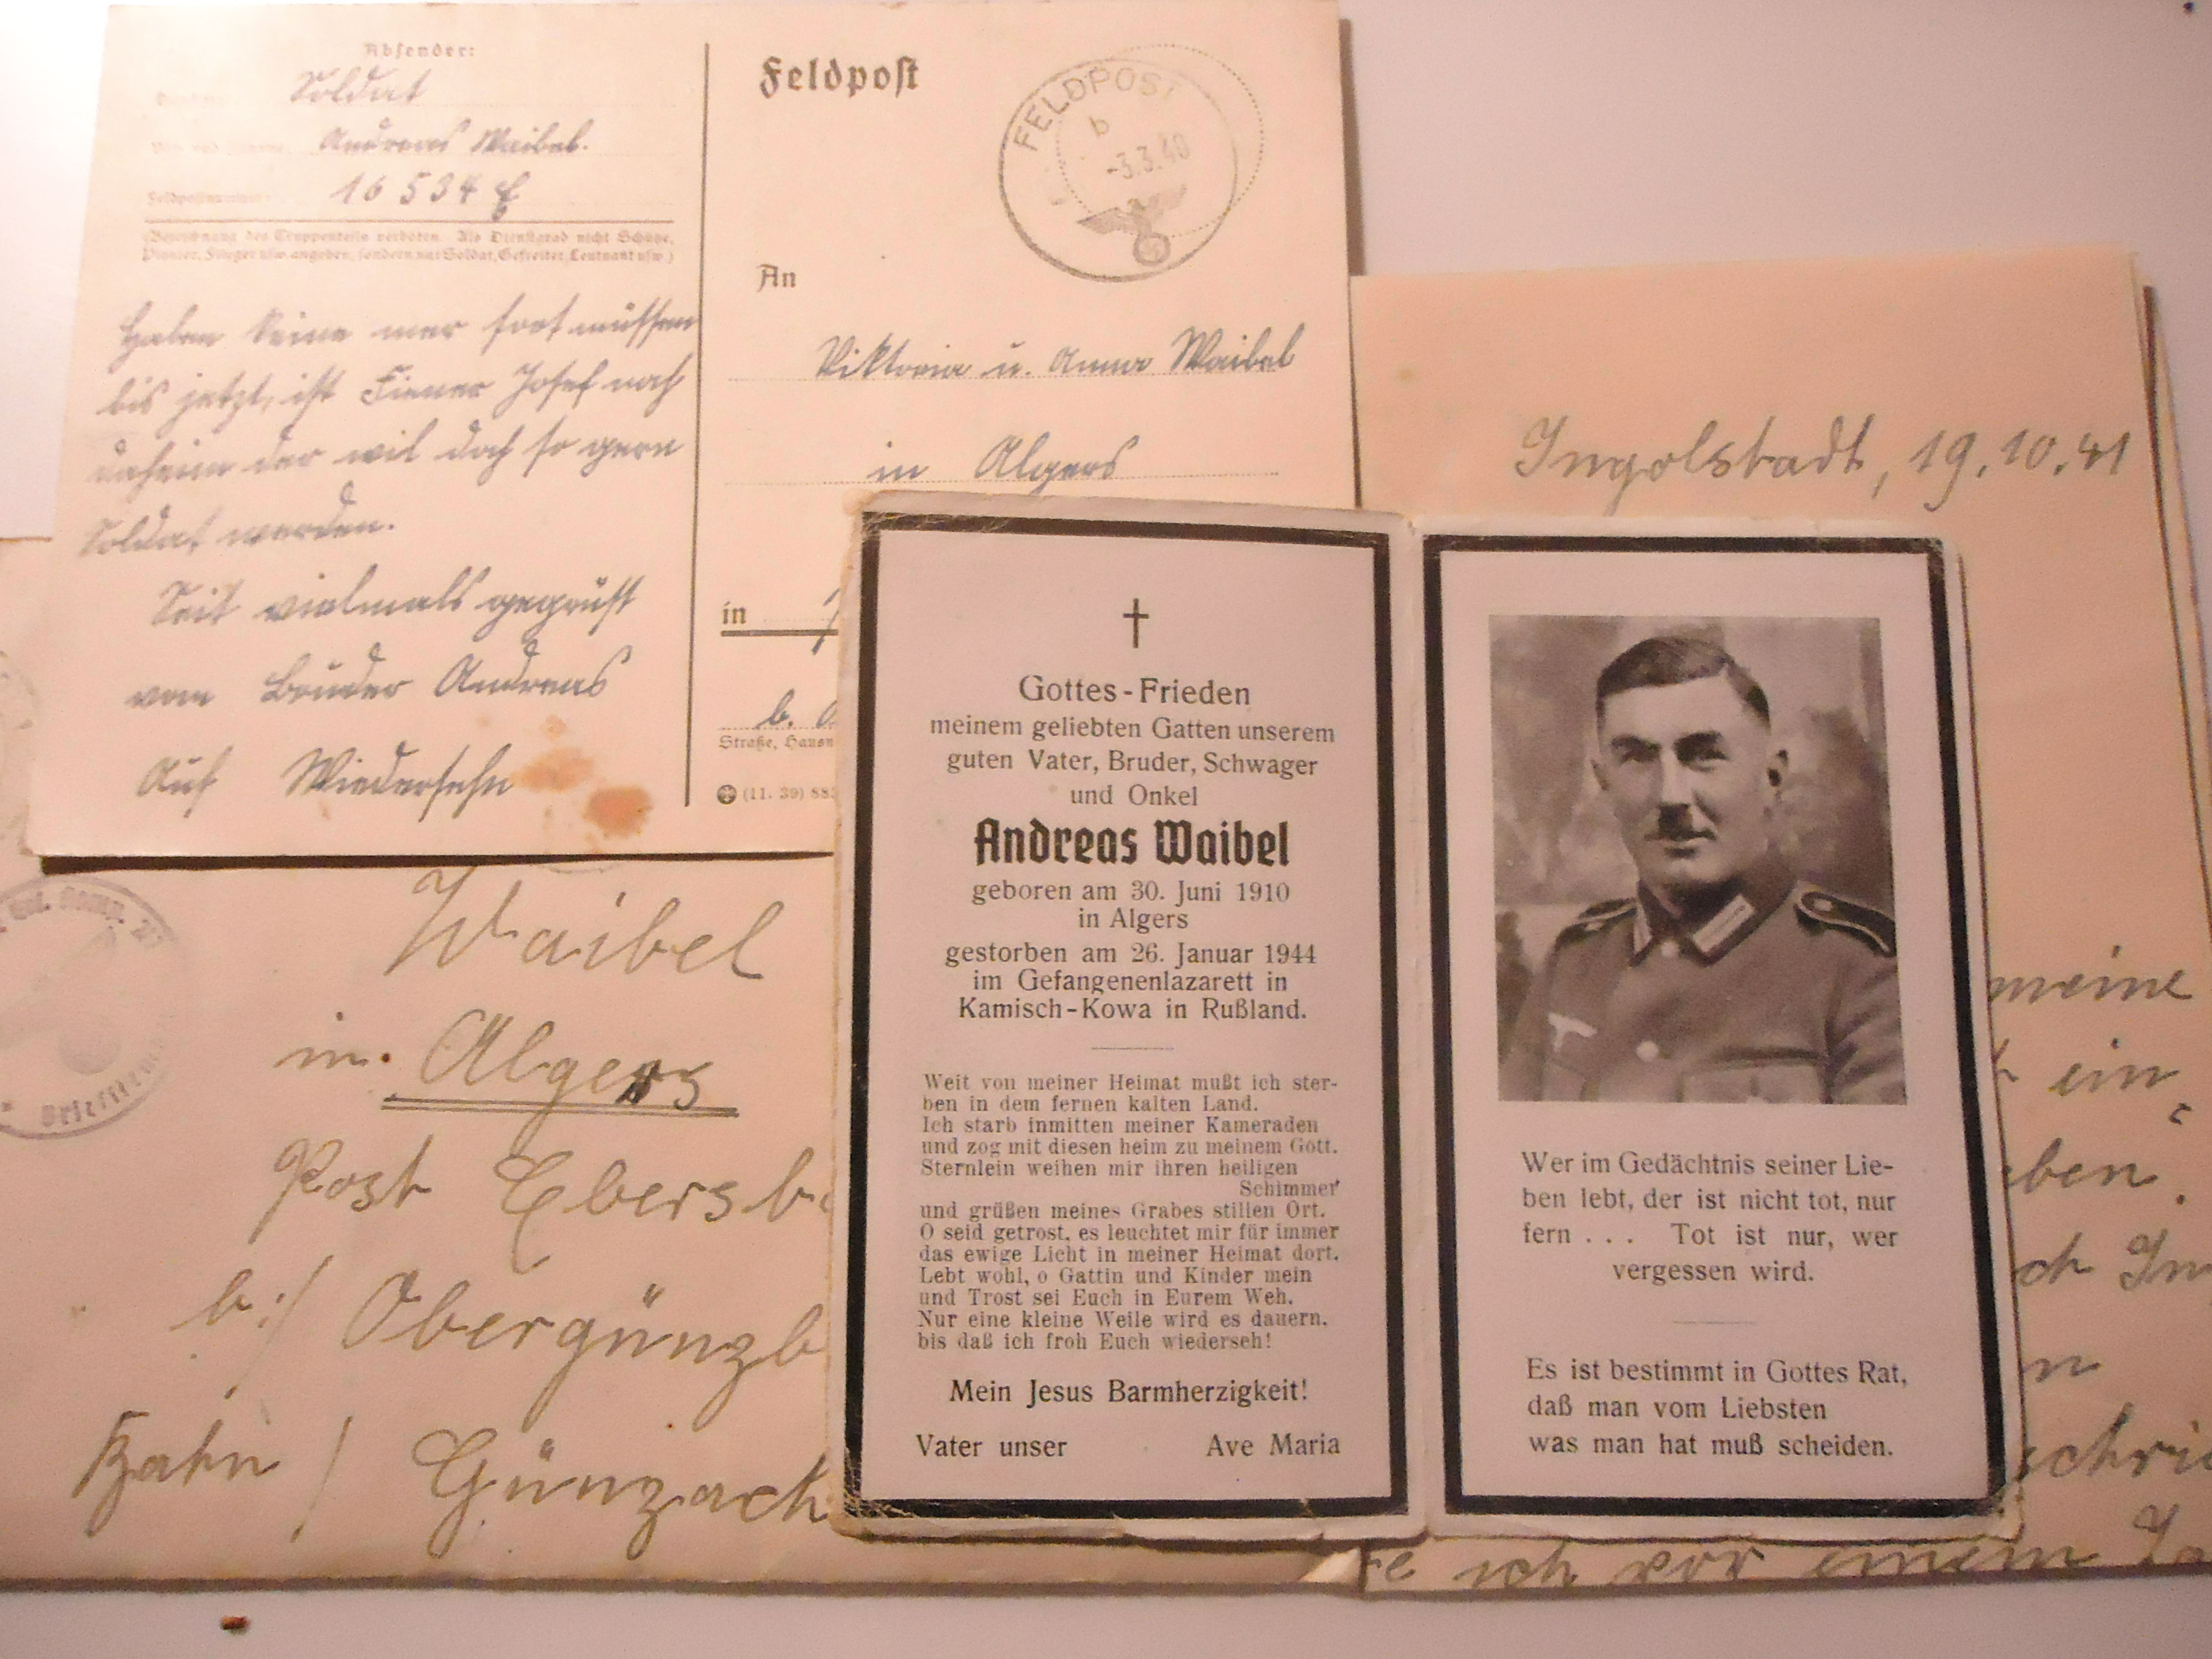 Absender:
Soldat
Andreas Waibel.
Feldpostnummer:
16534 E
(Bezeichnung des Truppenteils verboten. Als Dienstgrad nicht Schütze,
Pionier, Flieger usw. angeben, sondern nur Soldat, Gefreiter, Leutnant usw.)
Haben keine mer fort müssen
bis jetzt, ist Josef noch
daheim der wil doch so gern
Soldat werden.
Seit vielmals gegrüßt
vom Bruder Andreas
Auf Wiedersehn
Feldpost
FELDPOST
b
-3.3.40
An
Viktoria u. Anna Waibel
in Algers
in
b. O
Straße, Hausn
(11. 39)
Ingolstadt, 19.10.41
meine
ein
eben.
ch In
n
schri
ich vor einem
Waibel
in. Algers
Post Ebersb
b:/ Obergünzb
Bahn / Günzach
†
Gottes-Frieden
meinem geliebten Gatten unserem
guten Vater, Bruder, Schwager
und Onkel
Andreas Waibel
geboren am 30. Juni 1910
in Algers
gestorben am 26. Januar 1944
im Gefangenenlazarett in
Kamisch-Kowa in Rußland.
Weit von meiner Heimat mußt ich ster-
ben in dem fernen kalten Land.
Ich starb inmitten meiner Kameraden
und zog mit diesen heim zu meinem Gott.
Sternlein weihen mir ihren heiligen
Schimmer
und grüßen meines Grabes stillen Ort.
O seid getrost, es leuchtet mir für immer
das ewige Licht in meiner Heimat dort.
Lebt wohl, o Gattin und Kinder mein
und Trost sei Euch in Eurem Weh.
Nur eine kleine Weile wird es dauern,
bis daß ich froh Euch wiederseh!
Mein Jesus Barmherzigkeit!
Vater unser Ave Maria
Wer im Gedächtnis seiner Lie-
ben lebt, der ist nicht tot, nur
fern . . . Tot ist nur, wer
vergessen wird.
Es ist bestimmt in Gottes Rat,
daß man vom Liebsten
was man hat muß scheiden.